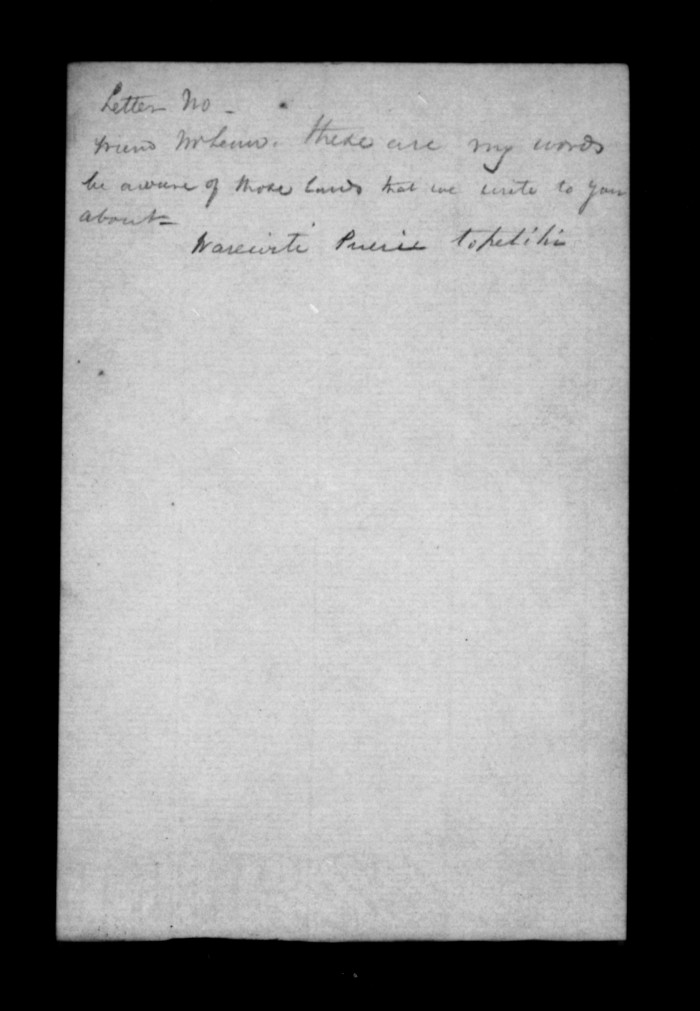 Letter No -
friend McLean. these are my words
be aware of those lands that we write to you
about -